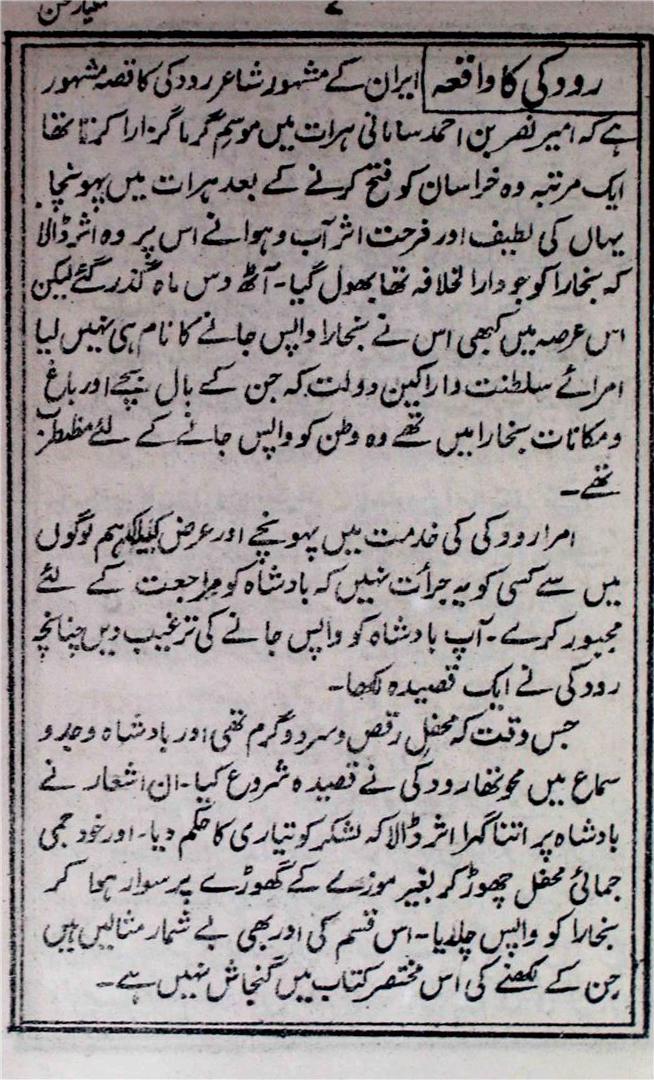 ۷
رودکی کا واقعہ
ایران کے مشہور شاعر رودکی کا قصہ مشہور
ہے کہ امیر نصر بن احمد سامانی ہرات میں موسم گرما گزارا کرتا تھا
ایک مرتبہ وہ خراسان کو فتح کرنے کے بعد ہرات میں پہونچا۔
یہاں کی لطیف اور فرحت اثر آب و ہوا نے اس پر وہ اثر ڈالا
کہ بخارا کو جو دارالخلافہ تھا بھول گیا۔ آٹھ دس ماہ گذر گئے لیکن
اس عرصہ میں کبھی اس نے بخارا واپس جانے کا نام ہی نہیں لیا
امرائے سلطنت و اراکین دولت کہ جن کے بال بچے اور باغ
و مکانات بخارا میں تھے وہ وطن کو واپس جانے کے لئے
تھے۔
امرا رودکی کی خدمت میں پہونچے اور عرض کیا کہ ہم لوگوں
میں سے کسی کو یہ جرأت نہیں کہ بادشاہ کو مراجعت کے لئے
مجبور کرے۔ آپ بادشاہ کو واپس جانے کی ترغیب دیں چنانچہ
رودکی نے ایک قصیدہ لکھا۔
جس وقت کہ محفل رقص و سرود گرم تھی اور بادشاہ وجد و
سماع میں محو تھا رودکی نے قصیدہ شروع کیا۔ ان اشعار نے
بادشاہ پر اتنا گہرا اثر ڈالا کہ لشکر کو تیاری کا حکم دیا۔ اور خود جمی
جمائی محفل چھوڑ کر بغیر موزے کے گھوڑے پر سوار ہوا کر
بخارا کو واپس چلدیا۔ اس قسم کی اور بھی بے شمار مثالیں ہیں
جن کے لکھنے کی اس مختصر کتاب میں گنجائش نہیں ہے۔